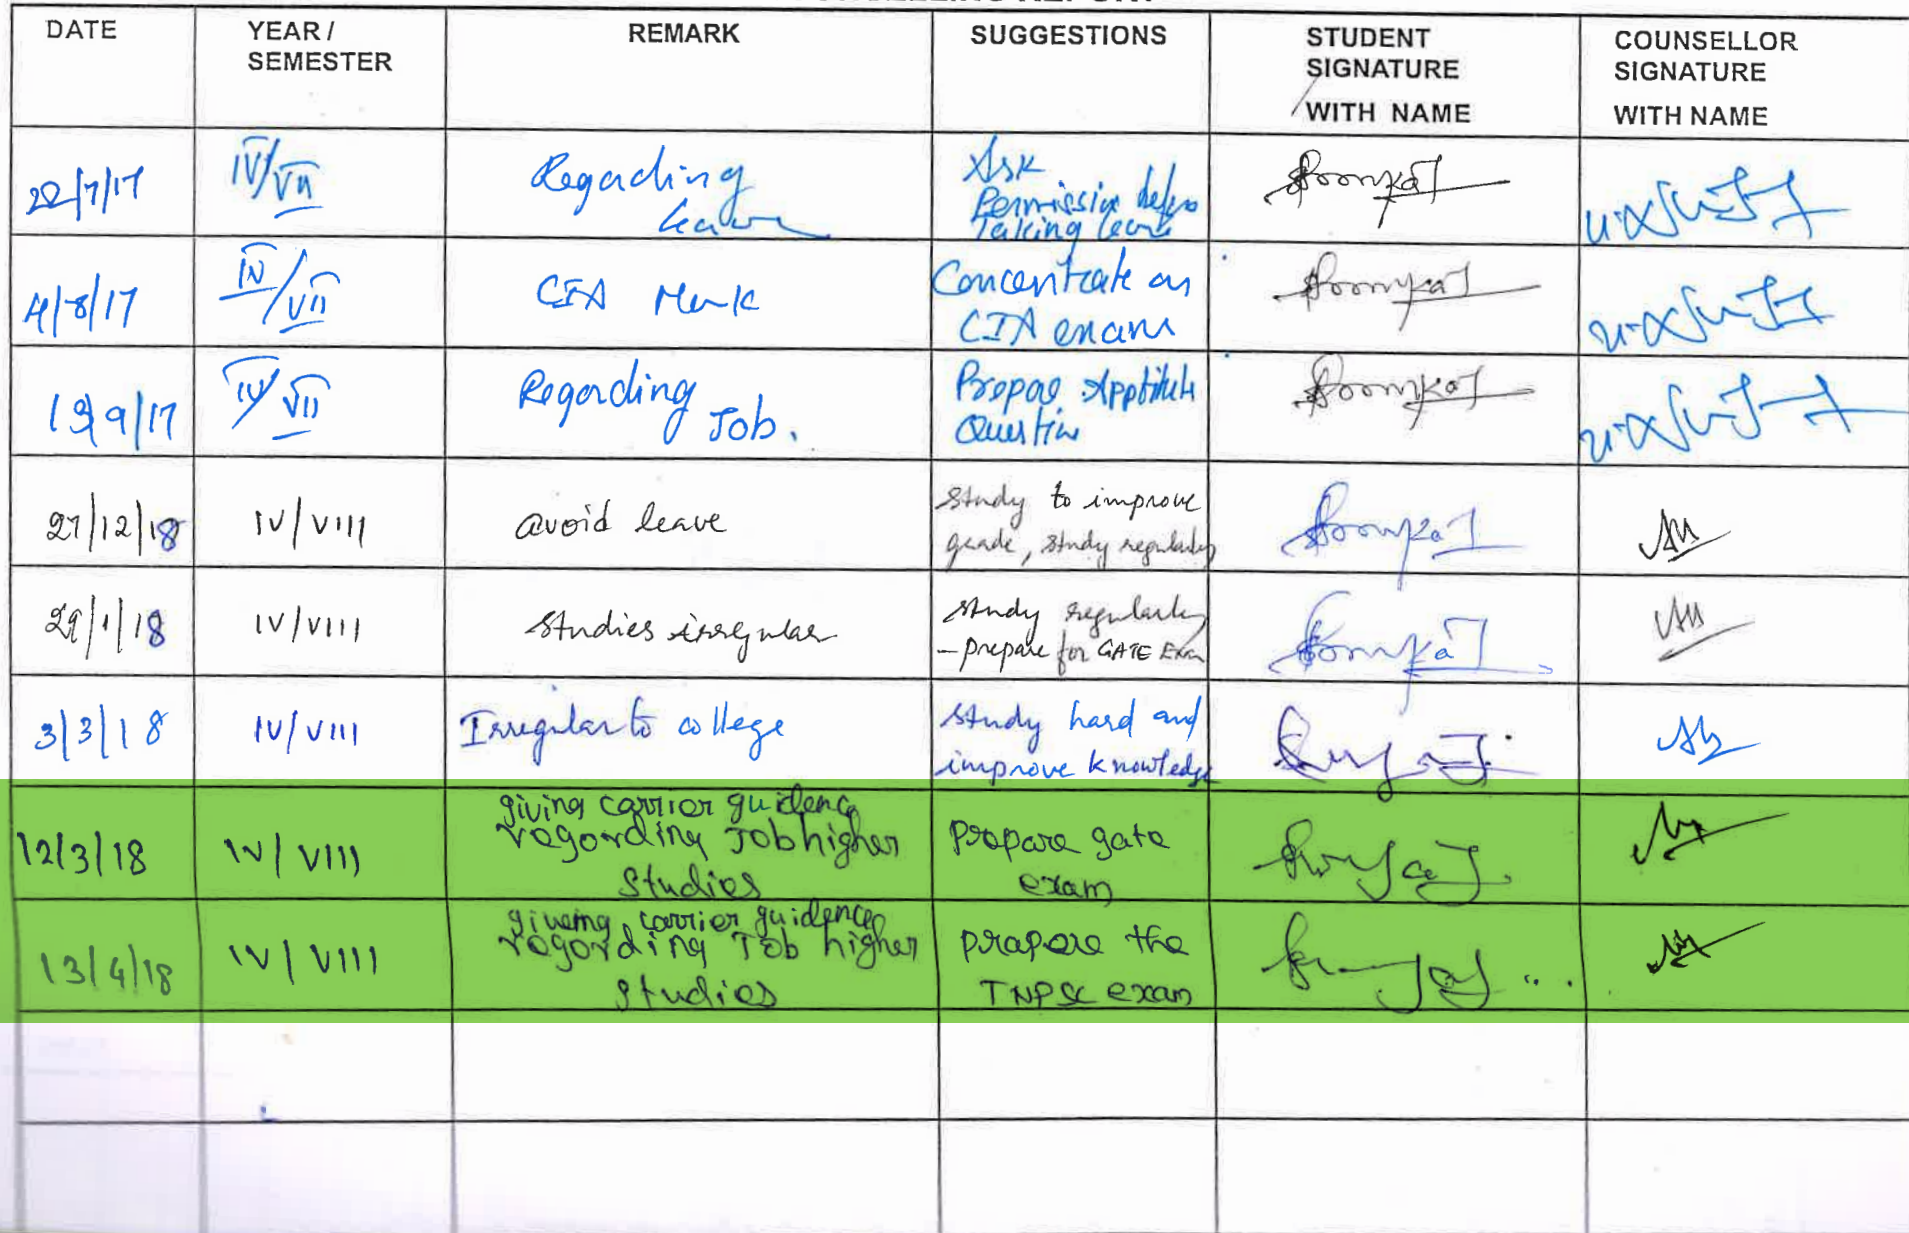 DATE
YEAR /
SEMESTER
REMARK
SUGGESTIONS
STUDENT
SIGNATURE
WITH NAME
COUNSELLOR
SIGNATURE
WITH NAME
22/7/17
IV/VII
Regarding
leave
Ask
Permission before
Taking leave
4/8/17
IV/VII
CIA Mark
Concentrate on
CIA exams
9/17
IV/VII
Regarding
Job.
Prepare Apptitude
Question
27/12/18
IV/VIII
avoid leave
study to improve
grade, study regularly
29/1/18
IV/VIII
studies irregular
study regularly
- prepare for GATE Exam
3/3/18
IV/VIII
Irregular to college
study hard and
improve knowledge
12/3/18
IV/VIII
giving carrier guidence
regarding Job higher
studies
prepare gate
exam
13/4/18
IV/VIII
giveing carrier guidence
regording Job higher
studies
prapere the
TNPSC exam